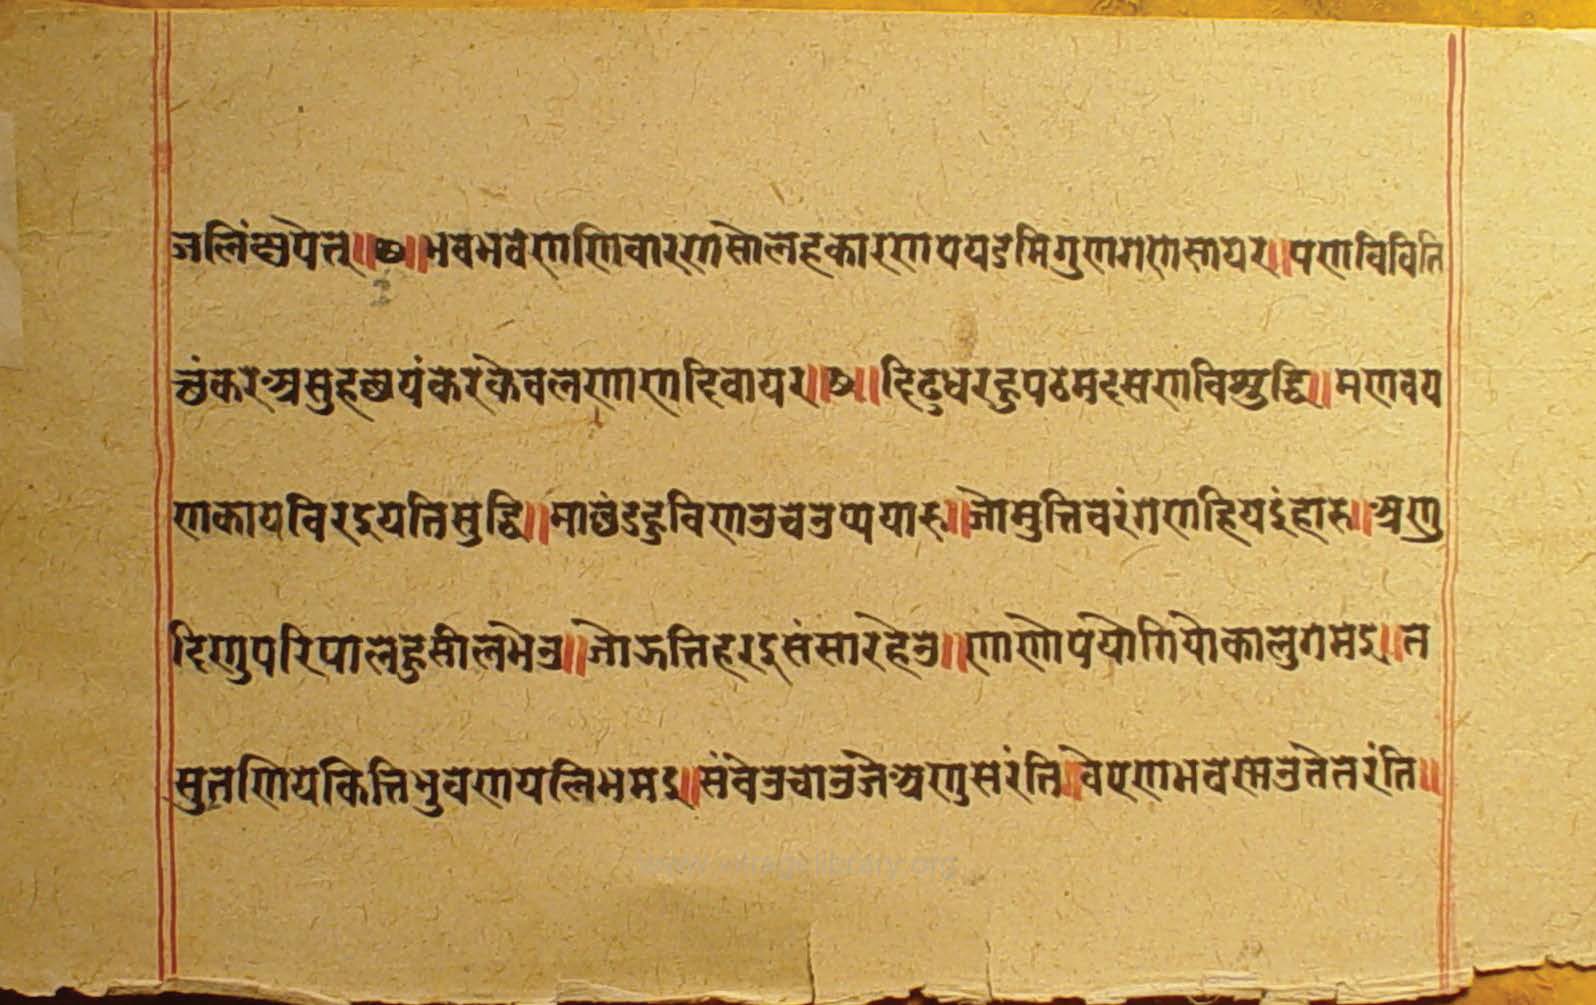 जलिंक्षपेत्॥छ॥भवभवेणणिवारणसोलहकारणपयडमिगुणगणसायर॥पणविवित्ति
च्छंकरेअसुहष्षयंकेरकेवलणाणदिवायर॥छ॥दिढुधरहुपढमदसणविशुद्धि॥मणवय
णकायविरइयतिसुद्धि॥माछंडहुविणउचउप्पयारु॥जोमुत्तिवरंगणहियइंहारु॥अणु
दिणुपरिपालहुसीलभेउ॥जोऊत्तिहरइसंसारहेउ॥णाणोपयोगियोकालुगमइ॥त
सुतणियकित्तिभुवणयलिभमइ॥संवेउचोउजेअणुसरंति॥वेएणभवेस्सउतेतरंति॥
www.vitragi-library.org